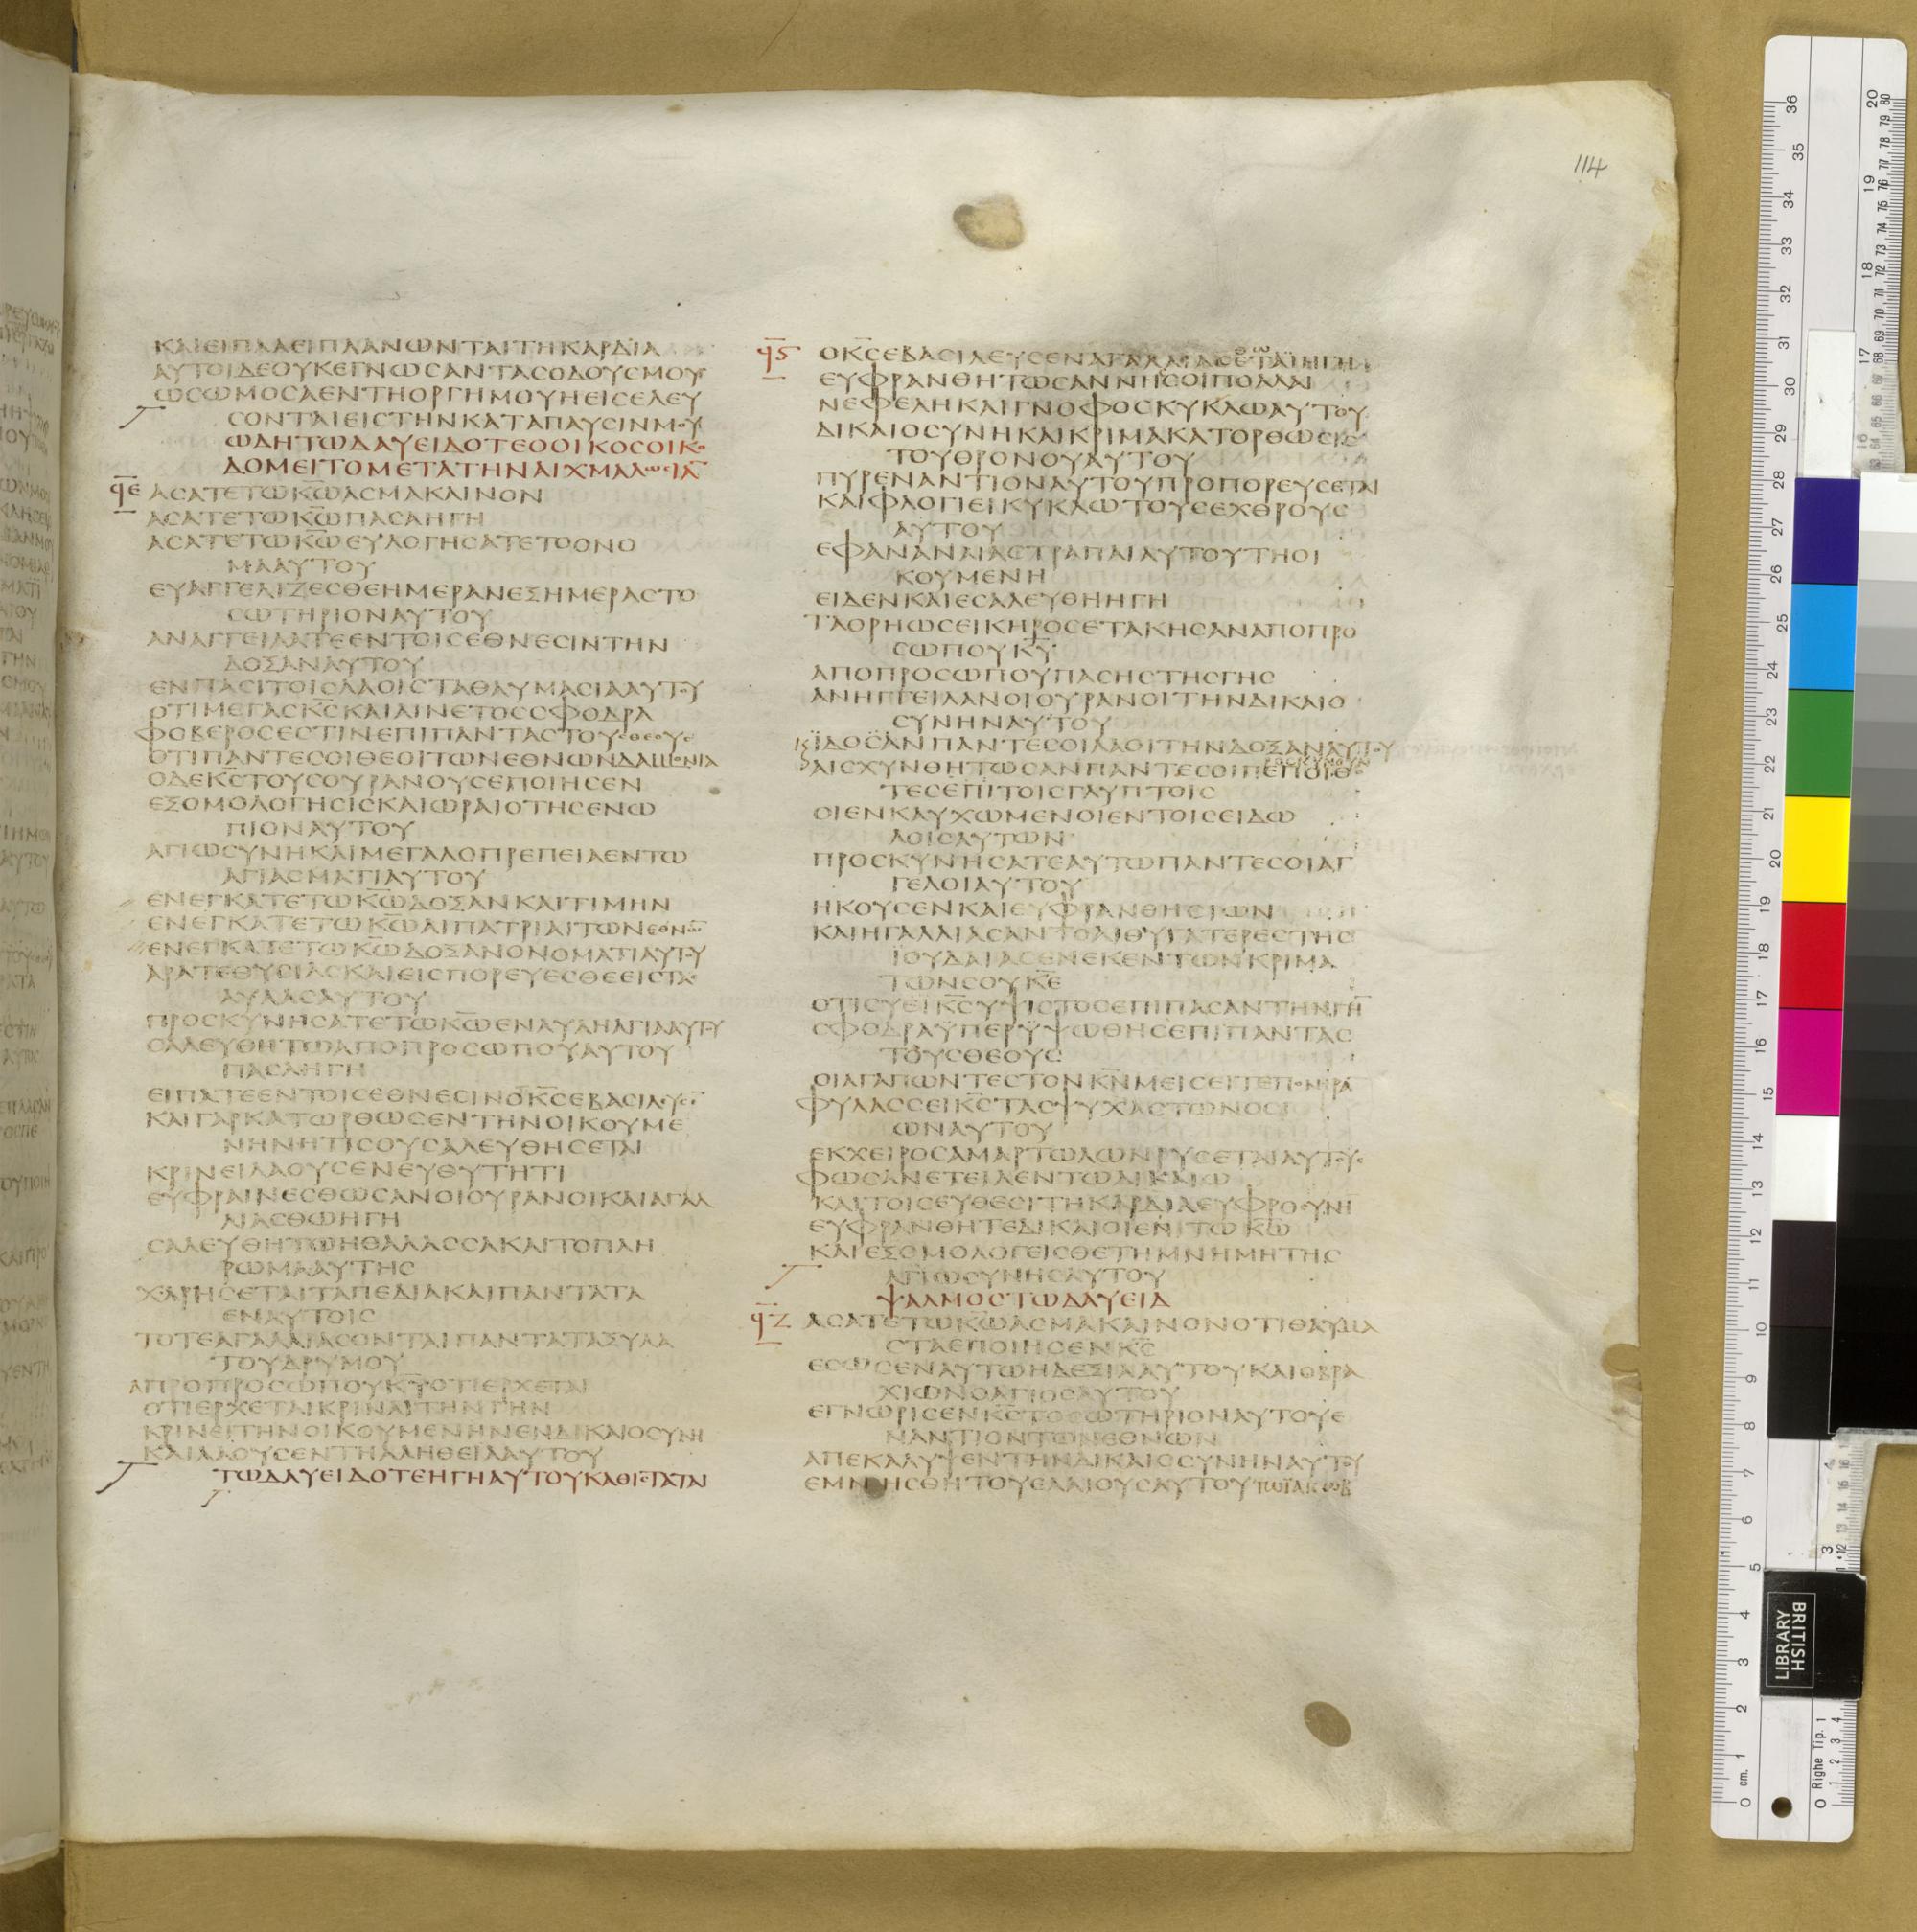 114
ΚΑΙΕΙΠΑΑΕΙΠΛΑΝΩΝΤΑΙΤΗΚΑΡΔΙΑ
ΑΥΤΟΙΔΕΟΥΚΕΓΝΩCΑΝΤΑCΟΔΟΥCΜΟΥ
ΩCΩΜΟCΑΕΝΤΗΟΡΓΗΜΟΥΗΕΙCΕΛΕΥ
CΟΝΤΑΙΕΙCΤΗΝΚΑΤΑΠΑΥCΙΝΜΟΥ
ΩΔΗΤΩΔΑΥΕΙΔΟΤΕΟΟΙΚΟCΟΙΚΟ
ΔΟΜΕΙΤΟΜΕΤΑΤΗΝΑΙΧΜΑΛΩCΙΑ̅
ϥ̅Ε ΑCΑΤΕΤΩΚ̅Ω̅ΑCΜΑΚΑΙΝΟΝ
ΑCΑΤΕΤΩΚ̅Ω̅ΠΑCΑΗΓΗ
ΑCΑΤΕΤΩΚ̅Ω̅ΕΥΛΟΓΗCΑΤΕΤΟΟΝΟ
ΜΑΑΥΤΟΥ
ΕΥΑΓΓΕΛΙΖΕCΘΕΗΜΕΡΑΝΕΞΗΜΕΡΑCΤΟ
CΩΤΗΡΙΟΝΑΥΤΟΥ
ΑΝΑΓΓΕΙΛΑΤΕΕΝΤΟΙCΕΘΝΕCΙΝΤΗΝ
ΔΟΞΑΝΑΥΤΟΥ
ΕΝΠΑCΙΤΟΙCΛΑΟΙCΤΑΘΑΥΜΑCΙΑΑΥΤΟΥ
ΟΤΙΜΕΓΑCΚ̅C̅ΚΑΙΑΙΝΕΤΟCCΦΟΔΡΑ
ΦΟΒΕΡΟCΕCΤΙΝΕΠΙΠΑΝΤΑCΤΟΥCΘΕΟΥC
ΟΤΙΠΑΝΤΕCΟΙΘΕΟΙΤΩΝΕΘΝΩΝΔΑΙΜΟΝΙΑ
ΟΔΕΚ̅C̅ΤΟΥCΟΥΡΑΝΟΥCΕΠΟΙΗCΕΝ
ΕΞΟΜΟΛΟΓΗCΙCΚΑΙΩΡΑΙΟΤΗCΕΝΩ
ΠΙΟΝΑΥΤΟΥ
ΑΓΙΩCΥΝΗΚΑΙΜΕΓΑΛΟΠΡΕΠΕΙΑΕΝΤΩ
ΑΓΙΑCΜΑΤΙΑΥΤΟΥ
ΕΝΕΓΚΑΤΕΤΩΚ̅Ω̅ΔΟΞΑΝΚΑΙΤΙΜΗΝ
ΕΝΕΓΚΑΤΕΤΩΚ̅Ω̅ΑΙΠΑΤΡΙΑΙΤΩΝΕΘΝΩ̅
ΕΝΕΓΚΑΤΕΤΩΚ̅Ω̅ΔΟΞΑΝΟΝΟΜΑΤΙΑΥΤΟΥ
ΑΡΑΤΕΘΥCΙΑCΚΑΙΕΙCΠΟΡΕΥΕCΘΕΕΙCΤΑC
ΑΥΛΑCΑΥΤΟΥ
ΠΡΟCΚΥΝΗCΑΤΕΤΩΚ̅Ω̅ΕΝΑΥΛΗΑΓΙΑΑΥΤΟΥ
CΑΛΕΥΘΗΤΩΑΠΟΠΡΟCΩΠΟΥΑΥΤΟΥ
ΠΑCΑΗΓΗ
ΕΙΠΑΤΕΕΝΤΟΙCΕΘΝΕCΙΝΟΚ̅C̅ΕΒΑCΙΛΕΥCΕ̅
ΚΑΙΓΑΡΚΑΤΩΡΘΩCΕΝΤΗΝΟΙΚΟΥΜΕ
ΝΗΝΗΤΙCΟΥCΑΛΕΥΘΗCΕΤΑΙ
ΚΡΙΝΕΙΛΑΟΥCΕΝΕΥΘΥΤΗΤΙ
ΕΥΦΡΑΙΝΕCΘΩCΑΝΟΙΟΥΡΑΝΟΙΚΑΙΑΓΑΛ
ΛΙΑCΘΩΗΓΗ
CΑΛΕΥΘΗΤΩΗΘΑΛΑCCΑΚΑΙΤΟΠΛΗ
ΡΩΜΑΑΥΤΗC
ΧΑΡΗCΕΤΑΙΤΑΠΕΔΙΑΚΑΙΠΑΝΤΑΤΑ
ΕΝΑΥΤΟΙC
ΤΟΤΕΑΓΑΛΛΙΑCΟΝΤΑΙΠΑΝΤΑΤΑΞΥΛΑ
ΤΟΥΔΡΥΜΟΥ
ΑΠΡΟΠΡΟCΩΠΟΥΚ̅Υ̅ΟΤΙΕΡΧΕΤΑΙ
ΟΤΙΕΡΧΕΤΑΙΚΡΙΝΑΙΤΗΝΓΗΝ
ΚΡΙΝΕΙΤΗΝΟΙΚΟΥΜΕΝΗΝΕΝΔΙΚΑΙΟCΥΝΗ
ΚΑΙΛΑΟΥCΕΝΤΗΑΛΗΘΕΙΑΑΥΤΟΥ
ΤΩΔΑΥΕΙΔΟΤΕΗΓΗΑΥΤΟΥΚΑΘΙCΤΑΤΑΙ
ϥ̅Ϛ ΟΚ̅C̅ΕΒΑCΙΛΕΥCΕΝΑΓΑΛΛΙΑCΕΤΑΙΗΓΗ
ΕΥΦΡΑΝΘΗΤΩCΑΝΝΗCΟΙΠΟΛΛΑΙ
ΝΕΦΕΛΗΚΑΙΓΝΟΦΟCΚΥΚΛΩΑΥΤΟΥ
ΔΙΚΑΙΟCΥΝΗΚΑΙΚΡΙΜΑΚΑΤΟΡΘΩCΙC
ΤΟΥΘΡΟΝΟΥΑΥΤΟΥ
ΠΥΡΕΝΑΝΤΙΟΝΑΥΤΟΥΠΡΟΠΟΡΕΥCΕΤΑΙ
ΚΑΙΦΛΟΓΙΕΙΚΥΚΛΩΤΟΥCΕΧΘΡΟΥC
ΑΥΤΟΥ
ΕΦΑΝΑΝΑΙΑCΤΡΑΠΑΙΑΥΤΟΥΤΗΟΙ
ΚΟΥΜΕΝΗ
ΕΙΔΕΝΚΑΙΕCΑΛΕΥΘΗΗΓΗ
ΤΑΟΡΗΩCΕΙΚΗΡΟCΕΤΑΚΗCΑΝΑΠΟΠΡΟ
CΩΠΟΥΚ̅Υ̅
ΑΠΟΠΡΟCΩΠΟΥΠΑCΗCΤΗCΓΗC
ΑΝΗΓΓΕΙΛΑΝΟΙΟΥΡΑΝΟΙΤΗΝΔΙΚΑΙΟ
CΥΝΗΝΑΥΤΟΥ
ΪΔΟCΑΝΠΑΝΤΕCΟΙΛΑΟΙΤΗΝΔΟΞΑΝΑΥΤΟΥ
ΑΙCΧΥΝΘΗΤΩCΑΝΠΑΝΤΕCΟΙΠΕΠΟΙΘΟ
ΤΕCΕΠΙΤΟΙCΓΛΥΠΤΟΙC
ΟΙΕΝΚΑΥΧΩΜΕΝΟΙΕΝΤΟΙCΕΙΔΩ
ΛΟΙCΑΥΤΩΝ
ΠΡΟCΚΥΝΗCΑΤΕΑΥΤΩΠΑΝΤΕCΟΙΑΓ
ΓΕΛΟΙΑΥΤΟΥ
ΗΚΟΥCΕΝΚΑΙΕΥΦΡΑΝΘΗCΙΩΝ
ΚΑΙΗΓΑΛΛΙΑCΑΝΤΟΑΙΘΥΓΑΤΕΡΕCΤΗC
ΪΟΥΔΑΙΑCΕΝΕΚΕΝΤΩΝΚΡΙΜΑ
ΤΩΝCΟΥΚ̅Ε̅
ΟΤΙCΥΕΙΚ̅C̅ΥΨΙCΤΟCΕΠΙΠΑCΑΝΤΗΝΓΗ̅
CΦΟΔΡΑΫΠΕΡΥΨΩΘΗCΕΠΙΠΑΝΤΑC
ΤΟΥCΘΕΟΥC
ΟΙΑΓΑΠΩΝΤΕCΤΟΝΚ̅Ν̅ΜΕΙCΕΙΤΕΠΟΝΗΡΑ
ΦΥΛΑCCΕΙΚ̅C̅ΤΑCΨΥΧΑCΤΩΝΟCΙ
ΩΝΑΥΤΟΥ
ΕΚΧΕΙΡΟCΑΜΑΡΤΩΛΩΝΡΥCΕΤΑΙΑΥΤΟΥC
ΦΩCΑΝΕΤΕΙΛΕΝΤΩΔΙΚΑΙΩ
ΚΑΙΤΟΙCΕΥΘΕCΙΤΗΚΑΡΔΙΑΕΥΦΡΟCΥΝΗ
ΕΥΦΡΑΝΘΗΤΕΔΙΚΑΙΟΙΕΝΤΩΚ̅Ω̅
ΚΑΙΕΞΟΜΟΛΟΓΕΙCΘΕΤΗΜΝΗΜΗΤΗC
ΑΓΙΩCΥΝΗCΑΥΤΟΥ
ΨΑΛΜΟCΤΩΔΑΥΕΙΔ
ϥ̅Ζ ΑCΑΤΕΤΩΚ̅Ω̅ΑCΜΑΚΑΙΝΟΝΟΤΙΘΑΥΜΑ
CΤΑΕΠΟΙΗCΕΝΚ̅C̅
ΕCΩCΕΝΑΥΤΩΗΔΕΞΙΑΑΥΤΟΥΚΑΙΟΒΡΑ
ΧΙΩΝΟΑΓΙΟCΑΥΤΟΥ
ΕΓΝΩΡΙCΕΝΚ̅C̅ΤΟCΩΤΗΡΙΟΝΑΥΤΟΥΕ
ΝΑΝΤΙΟΝΤΩΝΕΘΝΩΝ
ΑΠΕΚΑΛΥΨΕΝΤΗΝΔΙΚΑΙΟCΥΝΗΝΑΥΤΟΥ
ΕΜΝΗCΘΗΤΟΥΕΛΑΙΟΥCΑΥΤΟΥΤΩΪΑΚΩΒ
BRITISH
LIBRARY
0 cm. 1 2 3 4 5 6 7 8 9 10 11 12 13 14 15 16 17 18 19 20 21 22 23 24 25 26 27 28 29 30 31 32 33 34 35 36
0 Righe Tip. 1